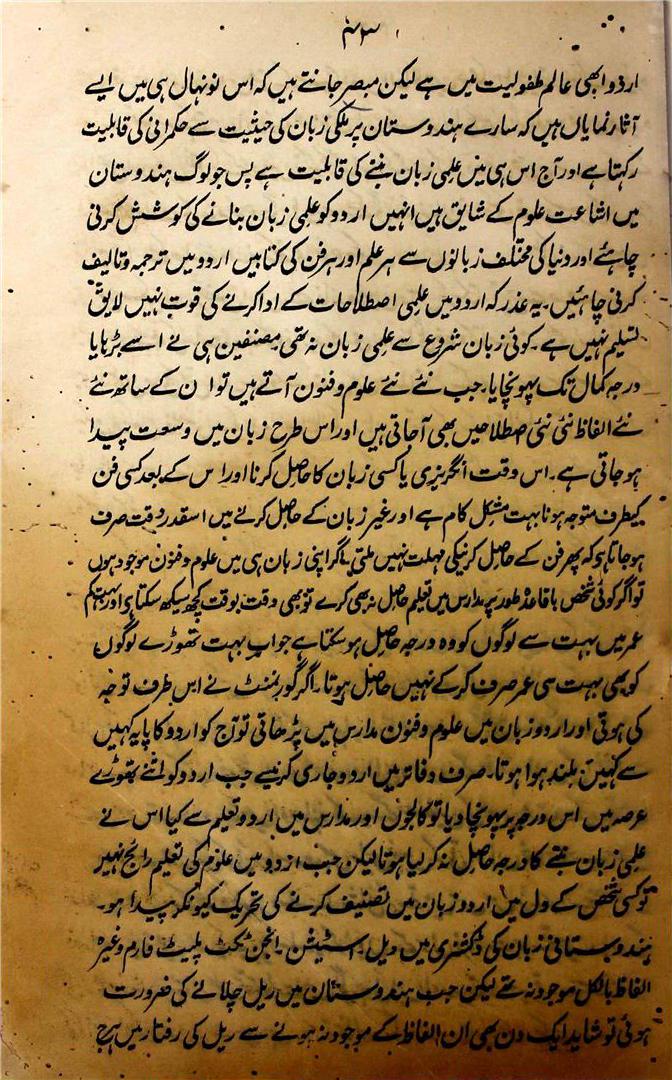 ۴۳
اردو ابھی عالم طفولیت میں ہے لیکن مبصر جانتے ہیں کہ اس نونہال ہی میں ایسے
آثار نمایاں ہیں کہ سارے ہندوستان پر ملکی زبان کی حیثیت سے حکمرانی کی قابلیت
رکہتا ہے اور آج اس ہی میں علمی زبان بننے کی قابلیت ہے پس جو لوگ ہندوستان
میں اشاعت علوم کے شایق ہیں انہیں اردو کو علمی زبان بنانے کی کوشش کرنی
چاہئے اور دنیا کی مختلف زبانوں سے ہر علم اور ہر فن کی کتابیں اردو میں ترجمہ و تالیف
کرنی چاہئیں۔ یہ عذر کہ اردو میں علمی اصطلاحات کے ادا کرنے کی قوت نہیں لایق
تسلیم نہیں ہے۔ کوئی زبان شروع سے علمی زبان نہ تھی مصنفین ہی نے اسے بڑہایا
درجہ کمال تک پہونچایا۔ جب نئے نئے علوم و فنون آتے ہیں تو ان کے ساتھ نئے
نئے الفاظ نئی نئی صطلاحیں بھی آجاتی ہیں اور اس طرح زبان میں وسعت پیدا
ہو جاتی ہے۔ اس وقت انگریزی یا کسی زبان کا حاصل کرنا اور اس کے بعد کسی فن
کیطرف متوجہ ہونا بہت مشکل کام ہے اور غیر زبان کے حاصل کرنے میں اسقدر وقت صرف
ہو جاتا ہی کہ پھر فن کے حاصل کرنیکی مہلت نہیں ملتی۔ اگر اپنی زبان ہی میں علوم و فنون موجود ہوں
تو اگر کوئی شخص باقاعدہ طور پر مدارس میں تعلیم حاصل نہ بھی کرے تو بھی وقت بوقت کچھ سیکھ سکتا ہی اور بہت کم
عمر میں بہت سے لوگوں کو وہ درجہ حاصل ہو سکتا ہے جو اب بہت تھوڑے لوگوں
کو بھی بہت سی عمر صرف کر کے نہیں حاصل ہوتا۔ اگر گورنمنٹ نے اس طرف توجہ
کی ہوتی اور اردو زبان میں علوم و فنون مدارس میں پڑھاتی تو آج کو اردو کا پایہ کہیں
سے کہیں بلند ہوا ہوتا۔ صرف دفاتر میں اردو جاری کرنیسے جب اردو کو اتنے تھوڑے
عرصہ میں اس درجہ پر پہونچا دیا تو کالجوں اور مدارس میں اردو تعلیم سے کیا اس نے
علمی زبان بننے کا درجہ حاصل نہ کر لیا ہوتا لیکن جب اردو میں علوم کی تعلیم رائج نہیں
تو کسی شخص کے دل میں اردو زبان میں تصنیف کرنے کی تحریک کیونکر پیدا ہو۔
ہندوستانی زبان کی ڈکشنری میں ریل۔ اسٹیشن۔ انجن ٹکٹ پلیٹ فارم وغیرہ
الفاظ بالکل موجود نہ تھے لیکن جب ہندوستان میں ریل چلانے کی ضرورت
ہوئی تو شاید ایک دن بھی ان الفاظ کے موجود نہ ہونے سے ریل کی رفتار میں ہرج